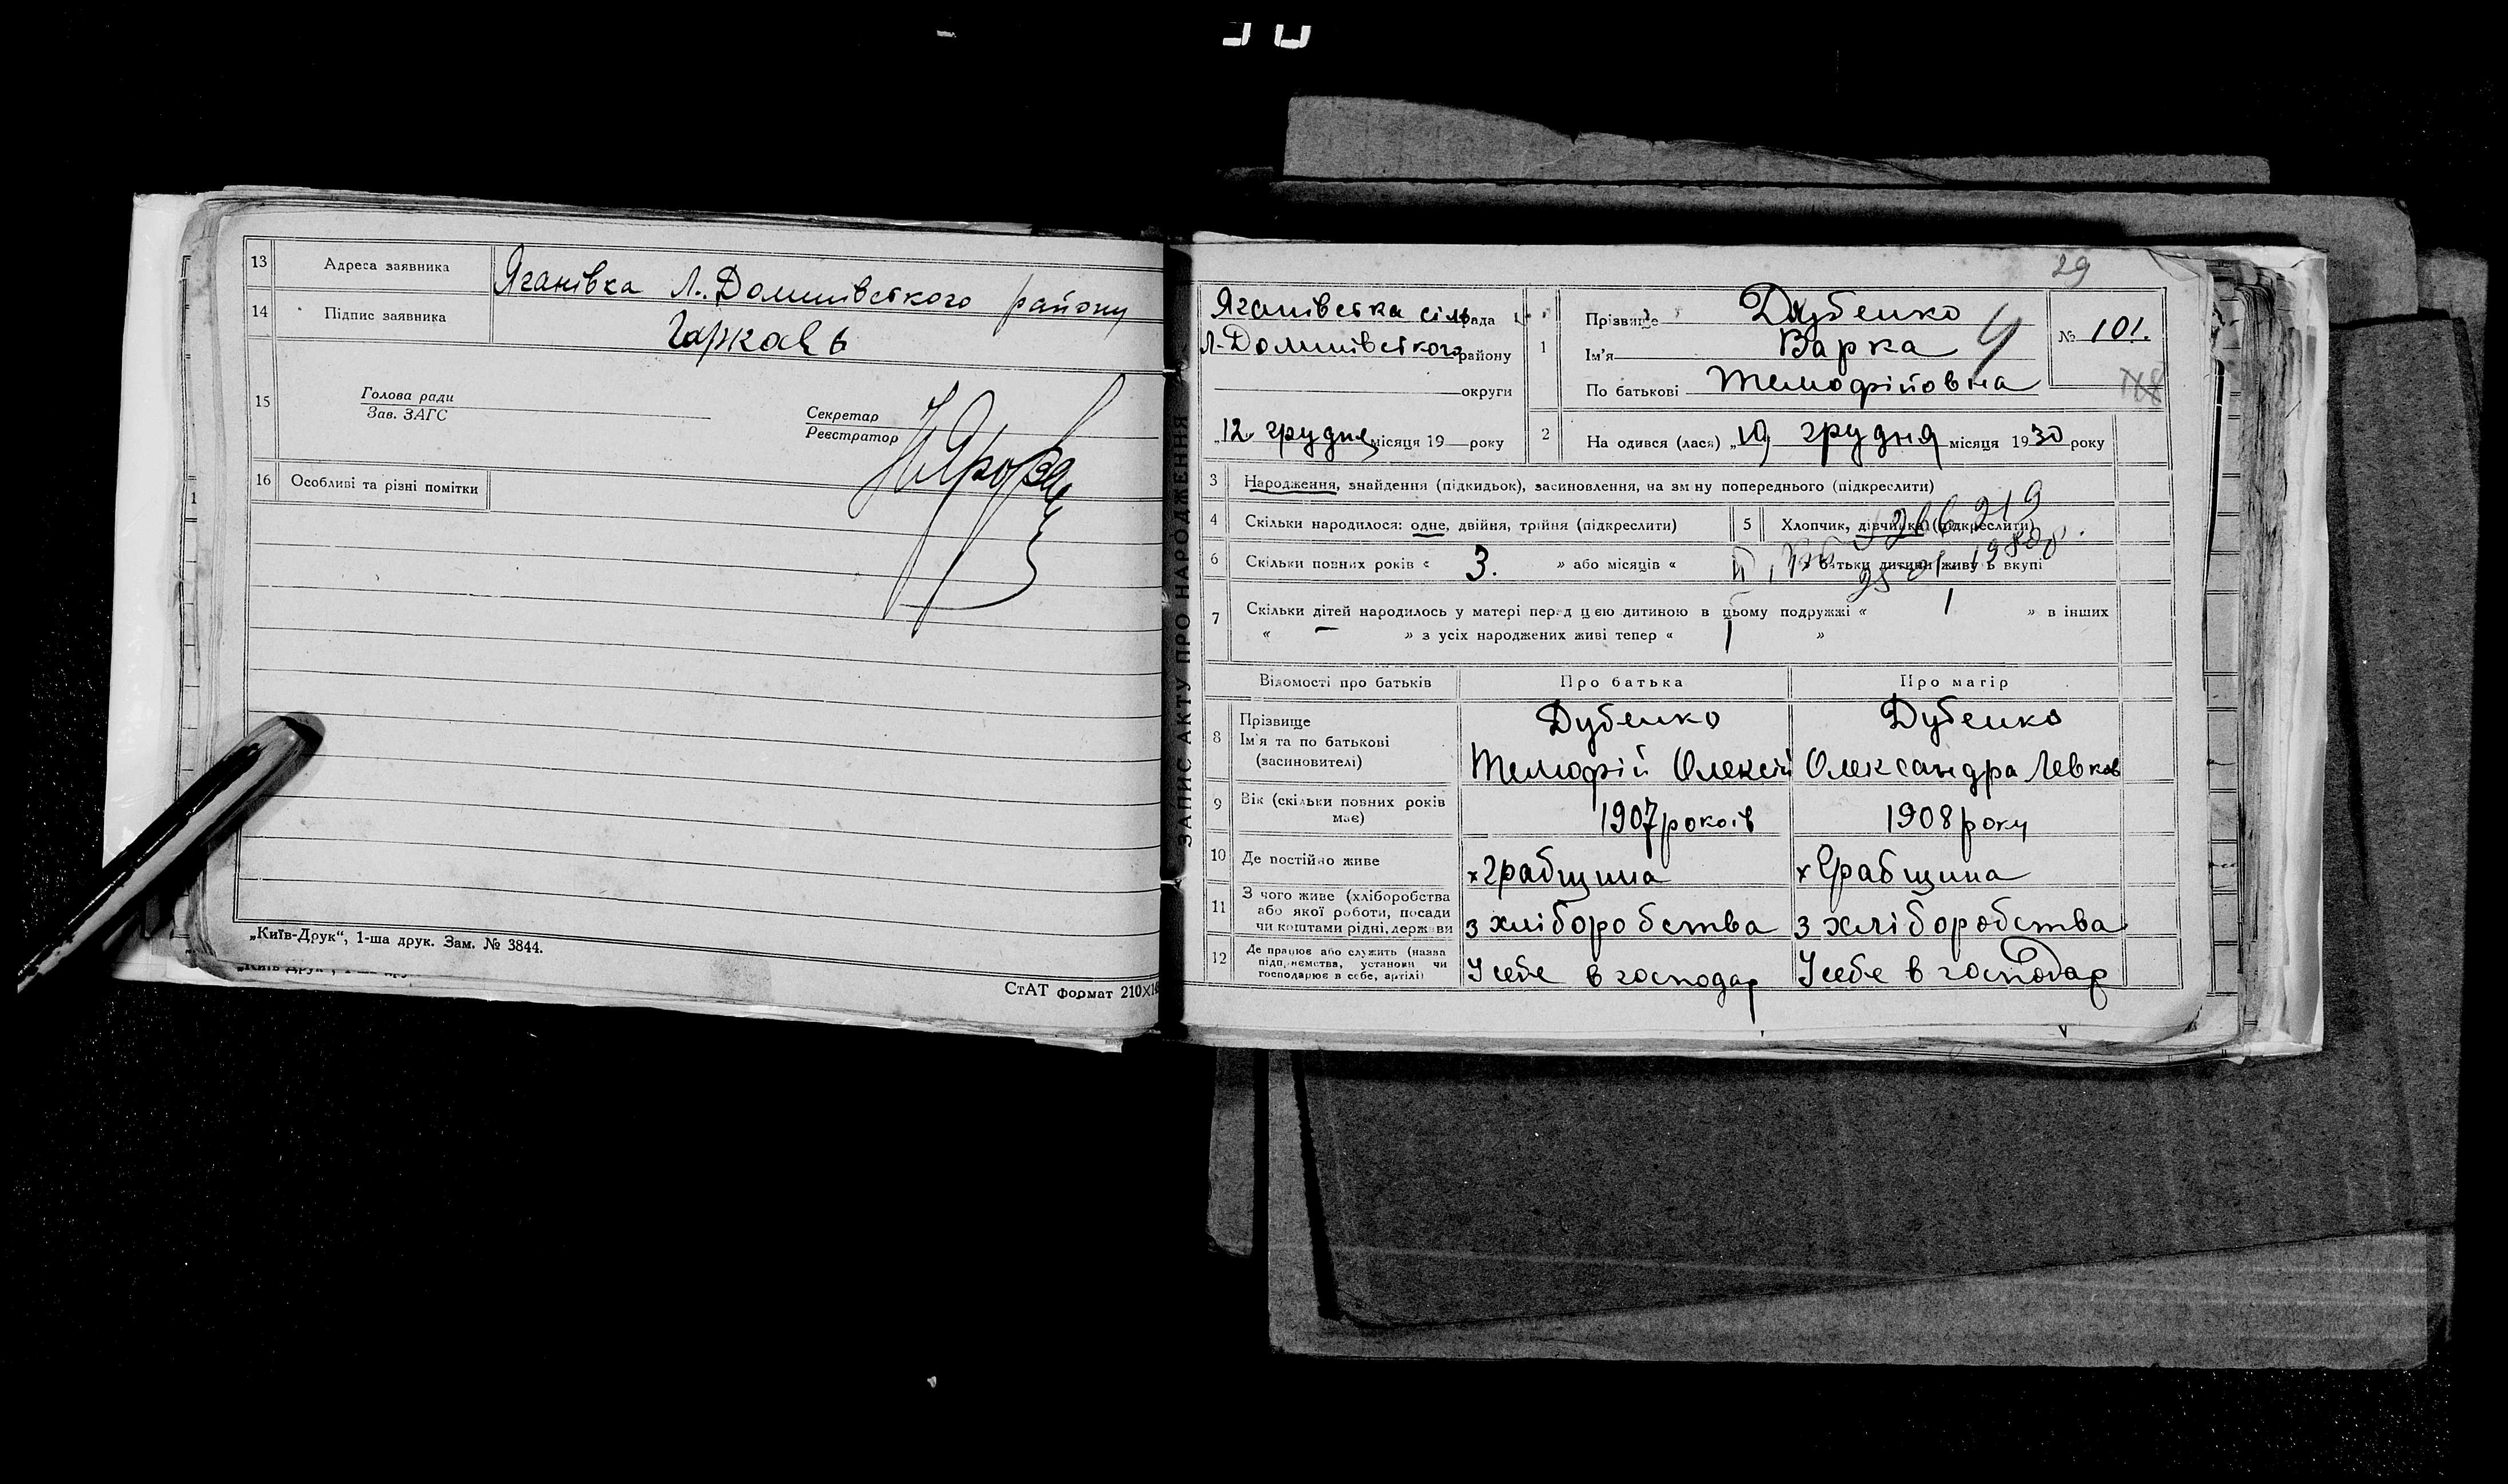 13 Адреса заявника Яганівка Л. Долинівського району
14 Підпис заявника Гаркавь
15 Голова ради
Зав. ЗАГС
Секретар
Реєстратор
16 Особливі та різні помітки
„Київ-Друк“, 1-ша друк. Зам. № 3844.
СтАТ формат 210х1
ЗАПИС АКТУ ПРО НАРОДЖЕННЯ
29
Яганівська сільрада
Л-Долинівського району
округи
„12 грудня місяця 19 року
1 Прізвище Дубенко
Ім'я Варка
По батькові Тимофійовна
№ 101.
2 На одився (лася) „10 грудня місяця 1930 року
3 Народження, знайдення (підкидьок), засиновлення, на зміну попереднього (підкреслити)
4 Скільки народилося: одне, двійня, трійня (підкреслити)
5 Хлопчик, дівчинка (підкреслити)
6 Скільки повних років « 3. » або місяців « батьки дитини живуть вкупі
7 Скільки дітей народилось у матері перед цією дитиною в цьому подружжі « 1 » в інших
« – » з усіх народжених живі тепер « 1 »
Відомості про батьків Про батька Про матір
8 Прізвище Дубенко Дубенко
Ім'я та по батькові
(засиновителі) Тимофій Олексій Олександра Левков
9 Вік (скільки повних років має) 1907 рокоів 1908 року
10 Де постійно живе х Грабщина х Грабщина
11 З чого живе (хліборобства
або якої роботи, посади
чи коштами рідні, держави з хліборобства з хліборобства
12 Де працює або служить (назва
підприємства, установи чи
господарює в себе, артілі) У себе в господар У себе в господар